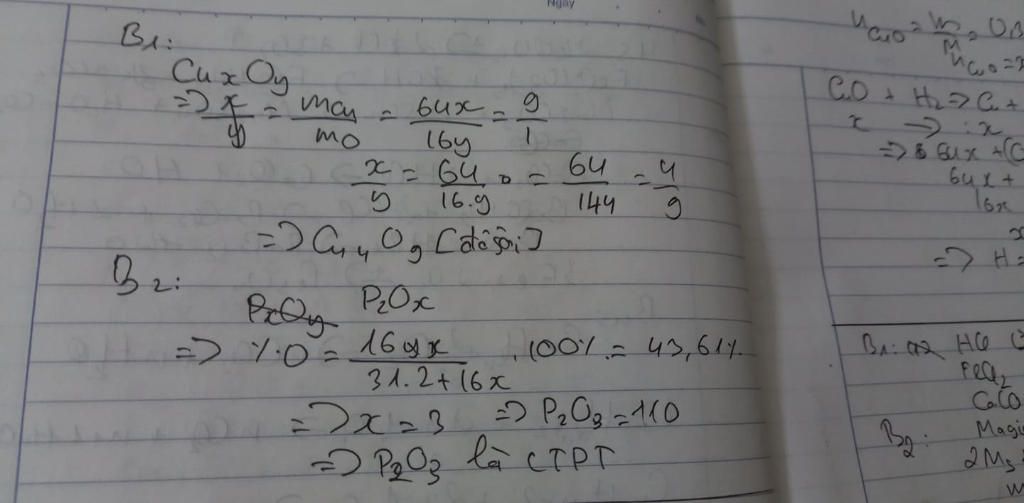 Ngày
B1:
CuxOy
=> x/y = mCu/mO = 64x/16y = 9/1
x/y = 64/16.9 = 64/144 = 4/9
=> Cu4O9 [đề sai]
B2:
PxOy P2Ox
=> %O = 16x/31.2+16x .100% = 43,61%
=> x = 3 => P2O3 = 110
=> P2O3 là CTPT
nCuO = m/M = 0,
nCuO =
CuO + H2 => Cu +
x -> x
=> 64x + (
64x +
16x
=> H =
B1: HCl
FeCl2
CaCO
B2: Magi
2M